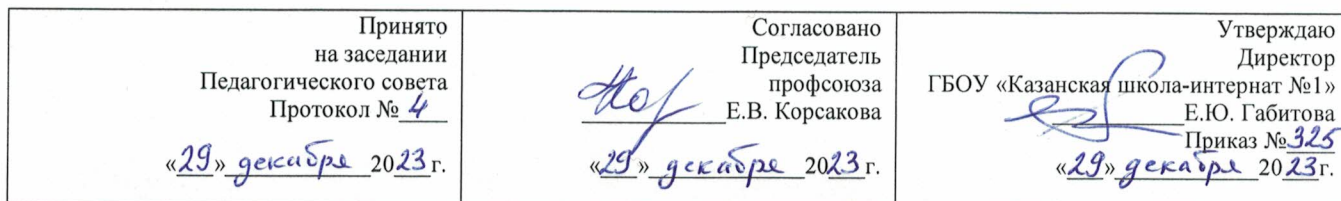 Принято
на заседании
Педагогического совета
Протокол № 4
«29» декабря 2023 г.
Согласовано
Председатель
профсоюза
Е.В. Корсакова
«29» декабря 2023 г.
Утверждаю
Директор
ГБОУ «Казанская школа-интернат №1»
Е.Ю. Габитова
Приказ №325
«29» декабря 2023 г.